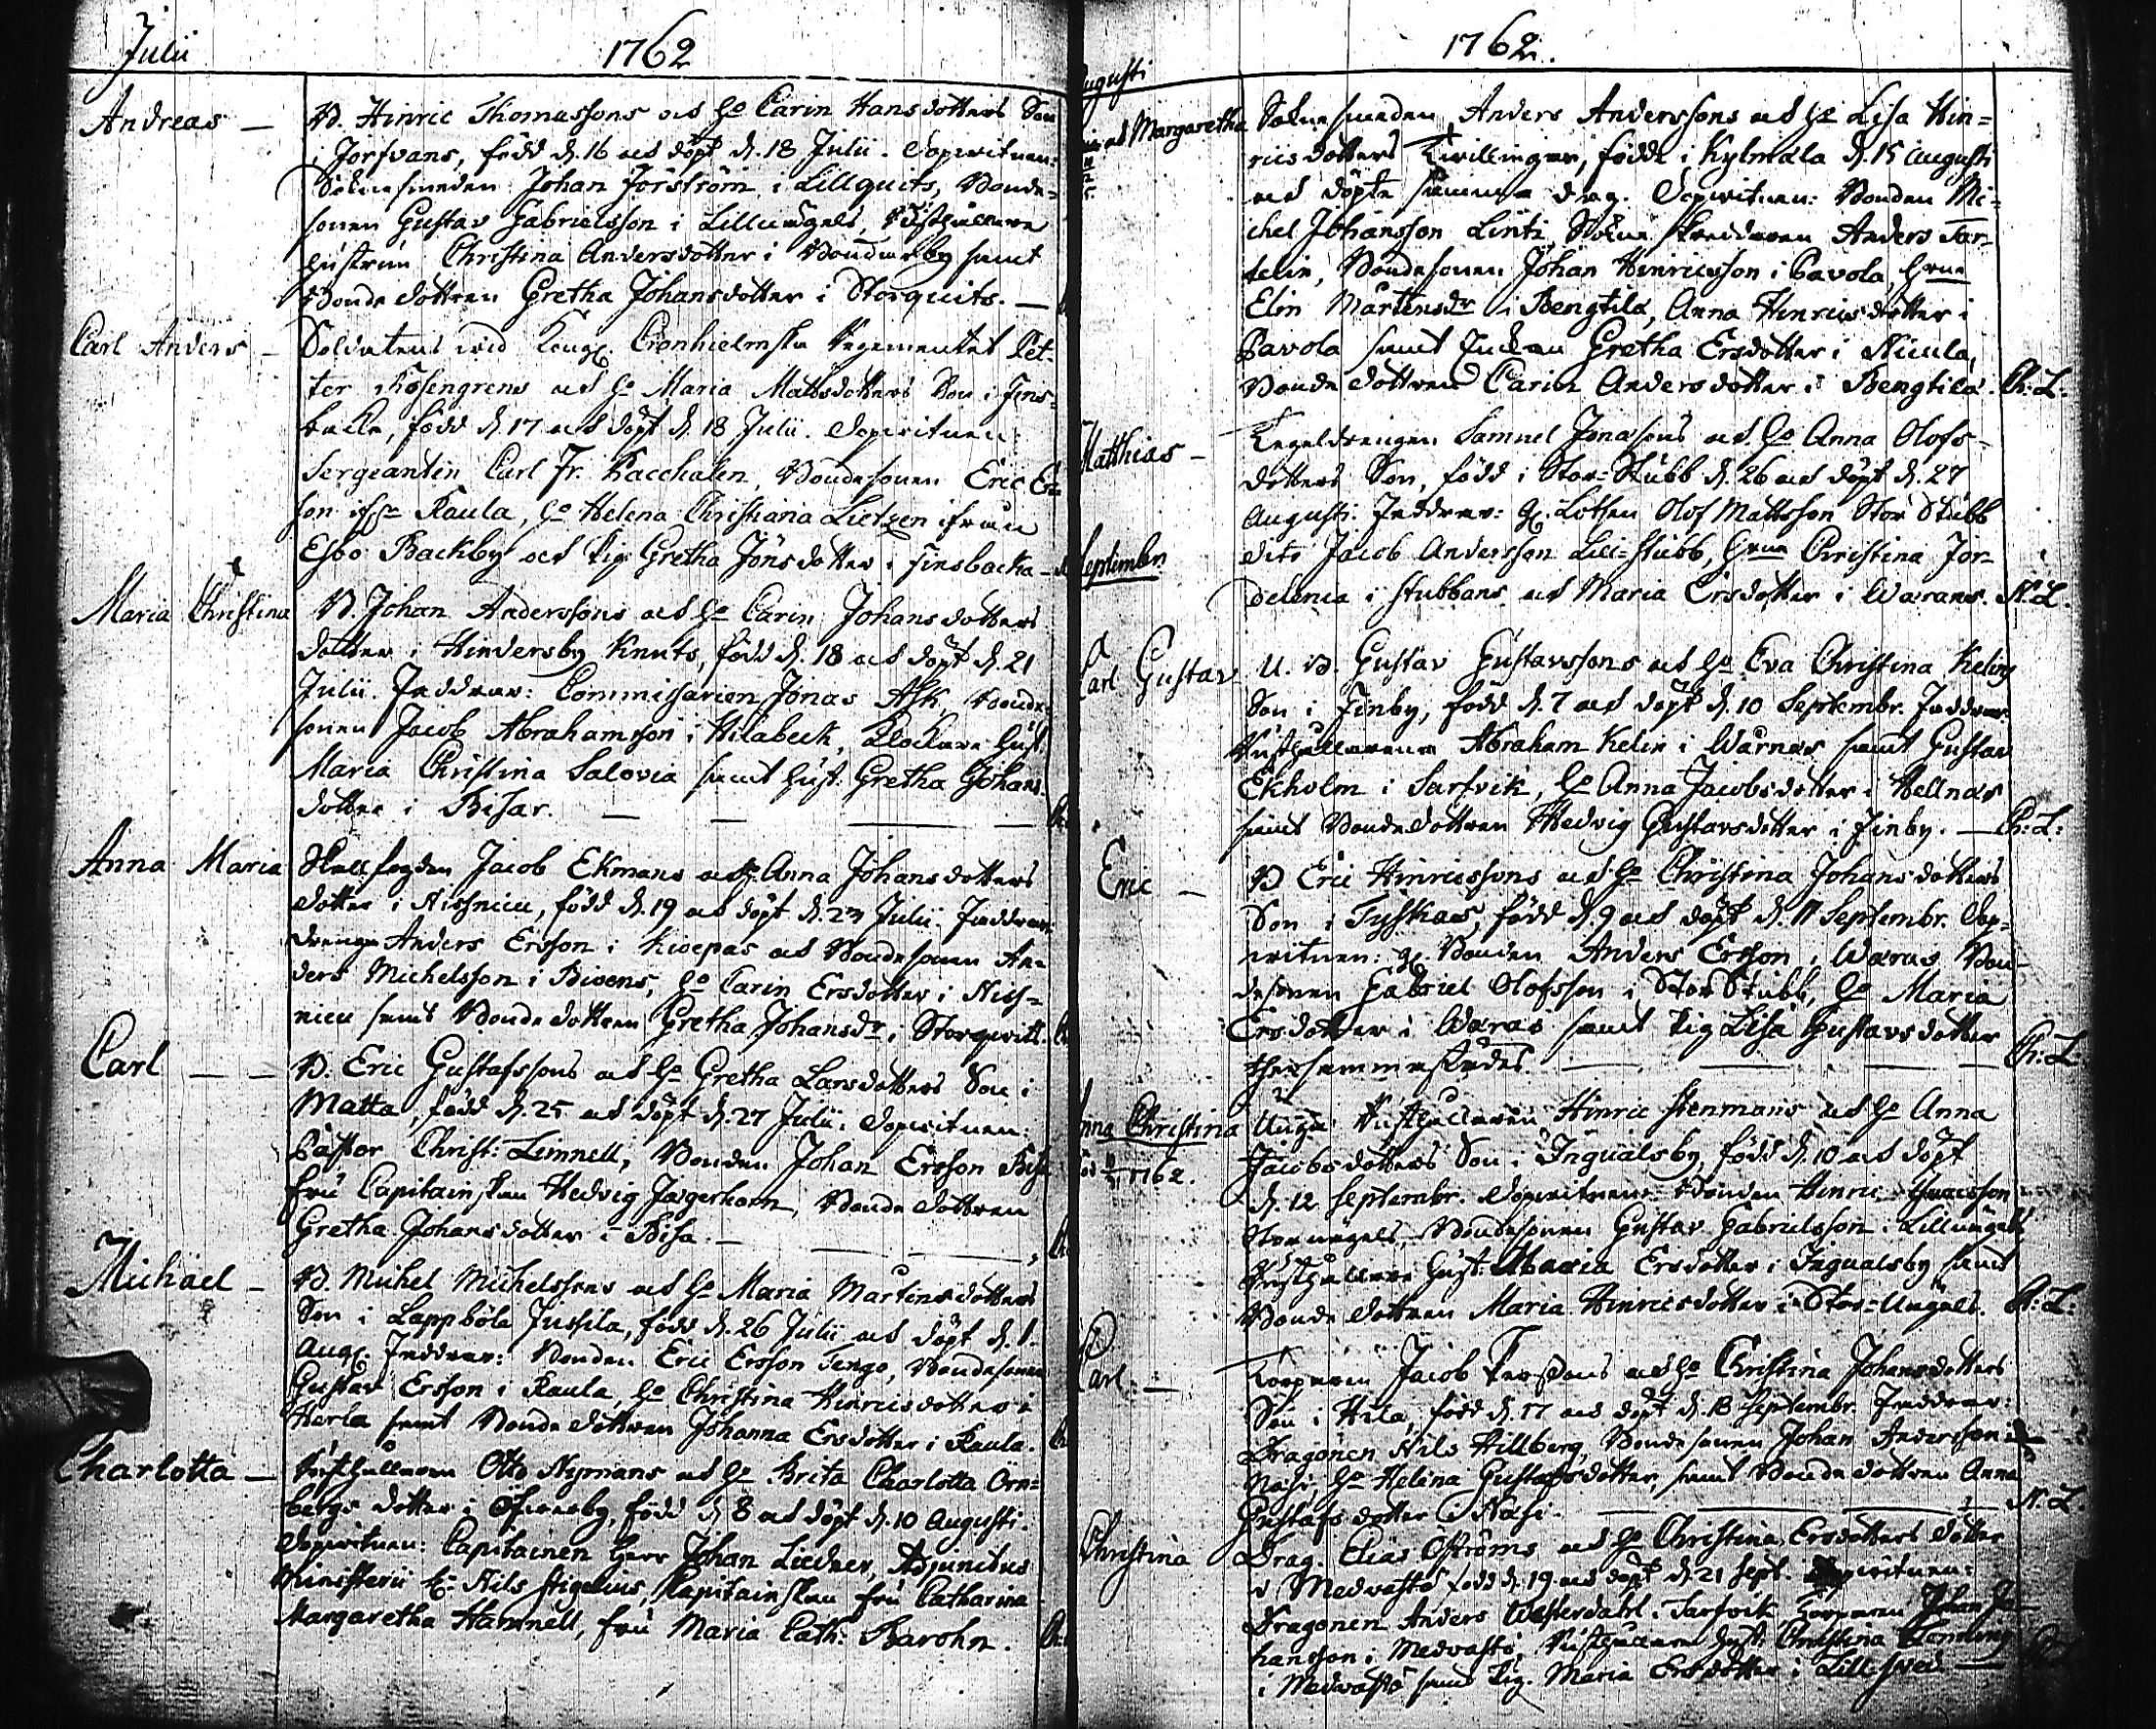 Julii
1762
Andreas —
B. Hinric Thomassons och H:o Carin Hansdotters Son
i Jorfvans, född d. 16 och döpt d. 18 Julii. Dopwitnen:
Sokne smeden Johan Forström i Lillquits, Bonde-
sonen Gustav Gabrielsson i Lillnägels, Rusthållare
hustrun Christina Andersdotter i Bondarby samt
Bonde dottren Gretha Johansdotter i Storquits. —
Carl Anders —
Soldatens wid Kongl. Cronhielmska Regementet Pet-
ter Rosengrens och H:o Maria Mattsdotters Son i Fins-
backa, född d. 17 och döpt d. 18 Julii. Dopwitnen:
Sergeanten Carl Fr. Bondesonen Eric Ers-
son Kaula, H:o Helena Christiana Lietzen ifrån
Esbo Backby och Pig. Gretha Jönsdotter i Finsbacka —
Maria Christina
B. Johan Anderssons och H:o Carin Johansdotters
dotter i Hindersby Knuts, född d. 18 och döpt d. 21
Julii. Faddrar: Commissarien Jonas Ask, Bonde-
sonen Jacob Abrahamsson i Hilabeck, Klockare Hust.
Maria Christina Salovia samt Hust: Gretha Johans-
dotter i Bisar. — — — —
Anna Maria
Jacob Ekmans och H:o Anna Johansdotters
dotter i Nissnicu, född d. 19 och döpt d. 23 Julii. Faddrar:
drengen Anders Ersson i Kivepas och Bondesonen An-
ders Michelsson i Bivens, H:o Carin Ersdotter i Niss-
nicu samt Bondedottren Gretha Johansdr i Storquits.
Carl — —
B. Eric Gustafssons och H:o Gretha Larsdotters Son i
Matta, född d. 25 och döpt d. 27 Julii. Dopwitnen:
Pastor Christ: Limnell, Bonden Johan Ersson Bisa
Fru Capitainskan Hedvig Jægerhorn, Bonde dottren
Gretha Johansdotter i Bisa. — — —
Michael —
B. Michel Michelssons och H:o Maria Martinsdotters
Son i Lappböle Jussila, född d. 26 Julii och döpt d. 1.
Aug. Faddrar: Bonden Eric Ersson Tengo, Bondesonen
Gustav Ersson i Kaula, H:o Christina Hinricsdotter i
Herla samt Bonde dottren Johanna Ersdotter i Kaula.
Charlotta —
Rusthållaren Otto Nymans och H:o Brita Charlotta Örn-
bergs dotter i född d. 8 och döpt d. 10 Augusti.
Dopwitnen: Capitainen Herr Johan Liedner, Adjunctus
Ministerii Hr Nils Stigelius, Kapitainskan fru Catharina
Margaretha Hammell, fru Maria Cath: Barohn.
1762.
Augusti
och Margaretha
Sokne smeden Anders Anderssons och H:o Lisa Hin-
ricsdotters Twillingar, födde i Kylmälä d. 15 Augusti
och döpte samma dag. Dopwitnen: Bonden Mi-
chel Johansson Linti, Sokne skreddaren Anders Tor-
telin, Bondesonen Johan Hinricsson i Pavola, H:run
Elin Mårtensdr i Bengtilä, Anna Hinricsdotter i
Pavola samt Enkan Gretha Ersdotter i Nicula,
Bonde dottren Carin Andersdotter i Bengtilä. Ch: L:
Matthias —
Samuel Jonassons och H:o Anna Olofs-
dotters Son, född i Stor-Stubb d. 26 och döpt d. 27
Augusti. Faddrar: Lotsen Olof Mattsson Stor Stubb
dito Jacob Andersson Lill-Stubb, H:run Christina Jor-
delenia i Stubbans och Maria Ersdotter i Warans. N. L.
Septembr.
Carl Gustav
U. B. Gustav Gustavssons och H:o Eva Christina Kelins
Son i Finby, född d. 7 och döpt d. 10 Septembr. Faddrar:
Rusthållarena Abraham Kelin i Wårnäs samt Gustav
Ekholm i Sarfvik, H:o Anna Jacobsdotter i Hellnäs
samt Bondedottren Hedvig Gustavsdotter i Finby. — Ch: L:
Eric —
B. Eric Hinricssons och H:o Christina Johansdotters
Son i Tysskas, född d. 9 och döpt d. 11 Septembr. Dop-
witnen: Bonden Anders Ersson i Waras Bon-
desonen Gabriel Olofsson i Stor Stubb, H:o Maria
Ersdotter i Waras samt Pig. Lisa Gustavsdotter
thersammastädes. — — — — Ch: L.
Anna Christina
1762.
Unga Rusthållaren Hinric Stenmans och H:o Anna
Jacobsdotters Son i Ingvalsby, född d. 10 och döpt
d. 12 Septembr. Dopwitnen: Bonden Hinric
Stornägels, Bondesonen Gustav Gabrielsson i Lillnägels
Rusthållare Hust: Maria Ersdotter i Ingvalsby samt
Bonde dottren Maria Hinricsdotter i Stor-Nägels. Ch: L:
Carl. —
Torparen Jacob Perssons och H:o Christina Johansdotters
Son i Hila, född d. 17 och döpt d. 18 Septembr. Faddrar:
Dragonen Nils Hillberg, Bondesonen Johan Andersson i
Näsi, H:o Helena Gustafsdotter, samt Bonde dottren Anna
Gustafsdotter i Näsi. — — — N. L.
Christina
Drag. Elias Öströms och H:o Christina Ersdotters dotter
i Medvastö född d. 19 och döpt d. 21 Sept. Dopwitnen:
Dragonen Anders Westerdahl i Sarfvik, Torparen Johan Jo-
hansson i Medvastö, Rusthållare Hust: Christina
i Medvastö samt Pig. Maria Ersdotter i Lill-Sved —